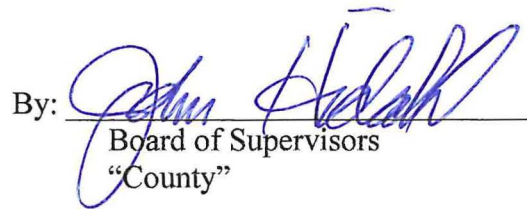 By: John Hidahl
Board of Supervisors
“County”